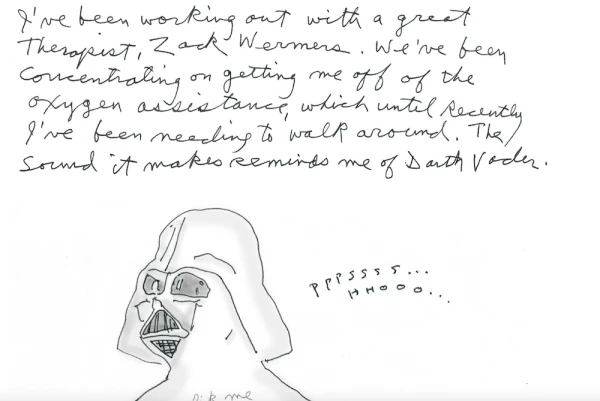 I've been working out with a great
Therapist, Zack Wermers. We've been
Concentrating on getting me off of the
oxygen assistance, which until recently
I've been needing to walk around. The
sound it makes reminds me of Darth Vader.
PPPSSSS...
HHOOO...
me